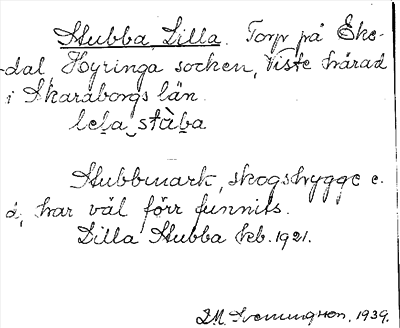 Stubba, Lilla. Torp på Eke-
dal Hyringa socken, Viste härad
i Skaraborgs län.
lela stàba
Stubbmark, skogshygge e.
d, har väl förr funnits.
Lilla Stubba heb. 1921.
1939.